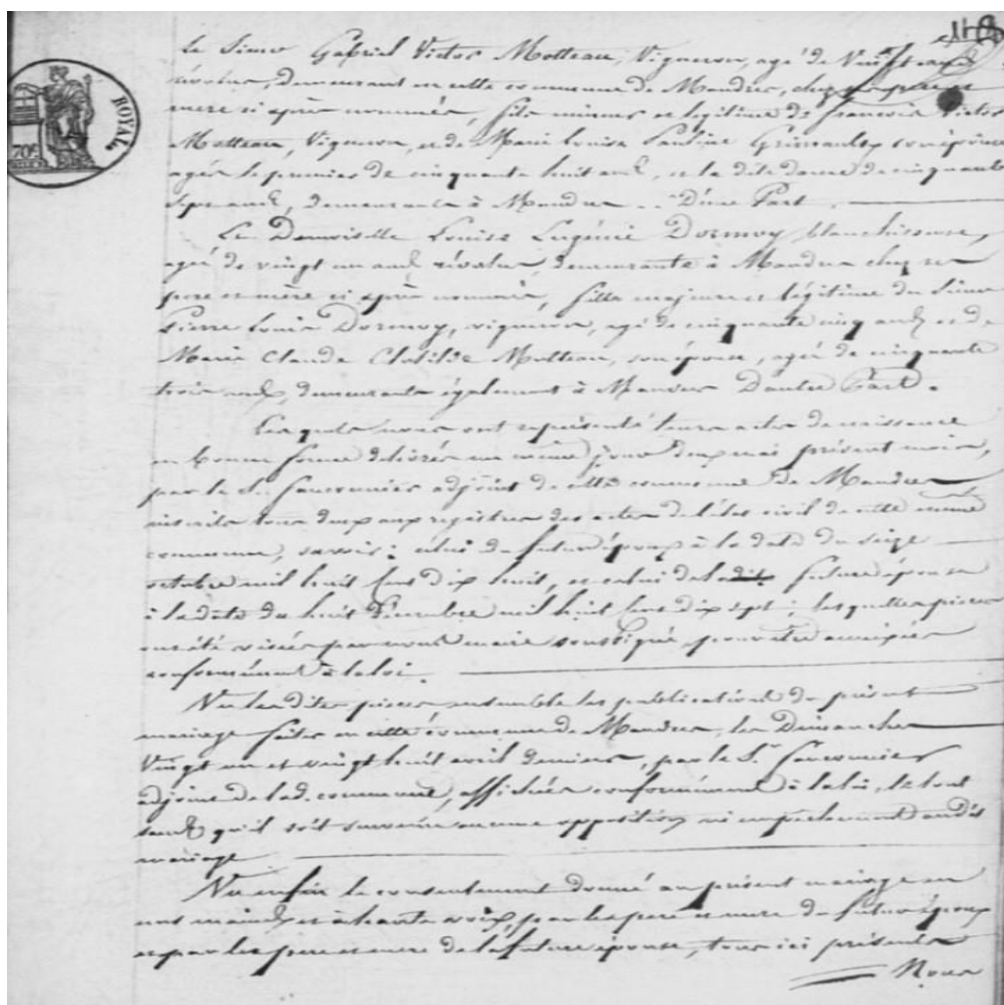 118
ROYAL
70c
le Sieur Gabriel Victor Motteau, Vigneron, agé de Vingt ans
révolus, demeurant en cette commune de Mandres, chez ses père et
mere ci après nommés, fils mineur et légitime de françois Victor
Motteau, Vigneron, et de Marie Louise Pauline Grimault, son épouse
agés le premier de cinquante huit ans, et la dite dame de cinquante
sept ans, demeurants à Mandres .. D'une Part.
La Demoiselle Louise Eugénie Dormoy, blanchisseuse,
agée de vingt un ans révolus, demeurante à Mandres chez ses
pere et mère ci après nommés, fille majeure et légitime du Sieur
Pierre Louis Dormoy, vigneron, agé de cinquante cinq ans et de
Marie Claude Clotilde Motteau, son épouse, agée de cinquante
trois ans, demeurants également à Mandres D'autre Part.
Lesquels nous ont représenté leurs actes de naissance
en bonne forme délivrés le même jour deux mai présent mois,
par le Sr. Fauconnier adjoint de cette commune de Mandres
inscrits tous deux aux registres des actes de l'état civil de cette même
commune, savoir: celui du futur époux à la date du seize
octobre mil huit cent dix huit, et celui de ladite future épouse
à la date du huit Décembre mil huit cent dix sept; lesquelles pieces
ont été visées par nous maire soussigné, pour être annexées
conformément à la loi.
Vu les dites pieces ensemble les publications du présent
mariage faites en cette commune de Mandres, les Dimanches
Vingt un et vingt huit avril derniers, par le Sr. Fauconnier
adjoint de lad. commune, affichées conformément à la loi, le tout
sans qu'il soit survenu aucune opposition ni empêchement audit
mariage
Vu enfin le consentement donné au présent mariage en
nos mains et à haute voix, par les pere et mere du futur époux
et par les pere et mere de la future épouse, tous ici présents
Nous